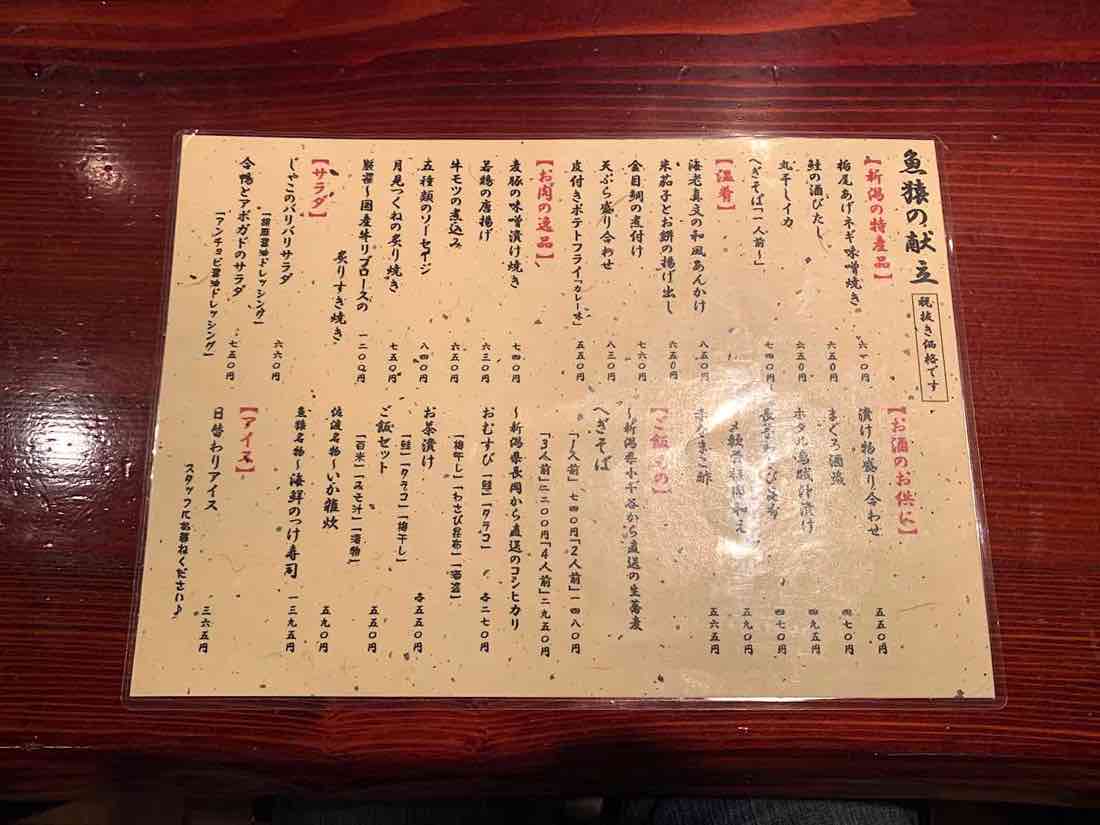 魚猿の献立
税抜き価格です
【新潟の特産品】
栃尾あげネギ味噌焼き 六一〇円
鮭の酒びたし 六五〇円
丸干しイカ 六五〇円
へぎそば「一人前〜」 七四〇円
【温肴】
海老真丈の和風あんかけ 八五〇円
米茄子とお餅の揚げ出し 六五〇円
金目鯛の煮付け 七六〇円
天ぷら盛り合わせ 八三〇円
皮付きポテトフライ「カレー味」 五五〇円
【お肉の逸品】
麦豚の味噌漬け焼き 七四〇円
若鶏の唐揚げ 六三〇円
牛モツの煮込み 六五〇円
五種類のソーセージ 八四〇円
月見つくねの炙り焼き 七五〇円
厳選〜国産牛リブロースの
炙りすき焼き 一二〇〇円
【サラダ】
じゃこのパリパリサラダ
「胡麻醤油ドレッシング」 六六〇円
合鴨とアボガドのサラダ
「アンチョビ醤油ドレッシング」 七五〇円
【お酒のお供に】
漬け物盛り合わせ 五五〇円
まぐろ酒盗 四七〇円
ホタル烏賊沖漬け 四九五円
四七〇円
五九〇円
酢 五六五円
【ご飯もの】
〜新潟県小千谷から直送の生蕎麦
へぎそば
「1人前」七四〇円「2人前」一四八〇円
「3人前」二二〇〇円「4人前」二九五〇円
〜新潟県長岡から直送のコシヒカリ
おむすび「鮭」「タラコ」 各二七〇円
「梅干し」「わさび昆布」「酒盗」
お茶漬け 各五五〇円
「鮭」「タラコ」「梅干し」
ご飯セット 五五〇円
「白米」「みそ汁」「漬物」
佐渡名物〜いか雑炊 五九〇円
魚猿名物〜海鮮のつけ寿司 一三九五円
【アイス】
日替わりアイス 三六五円
スタッフにお尋ねください♪